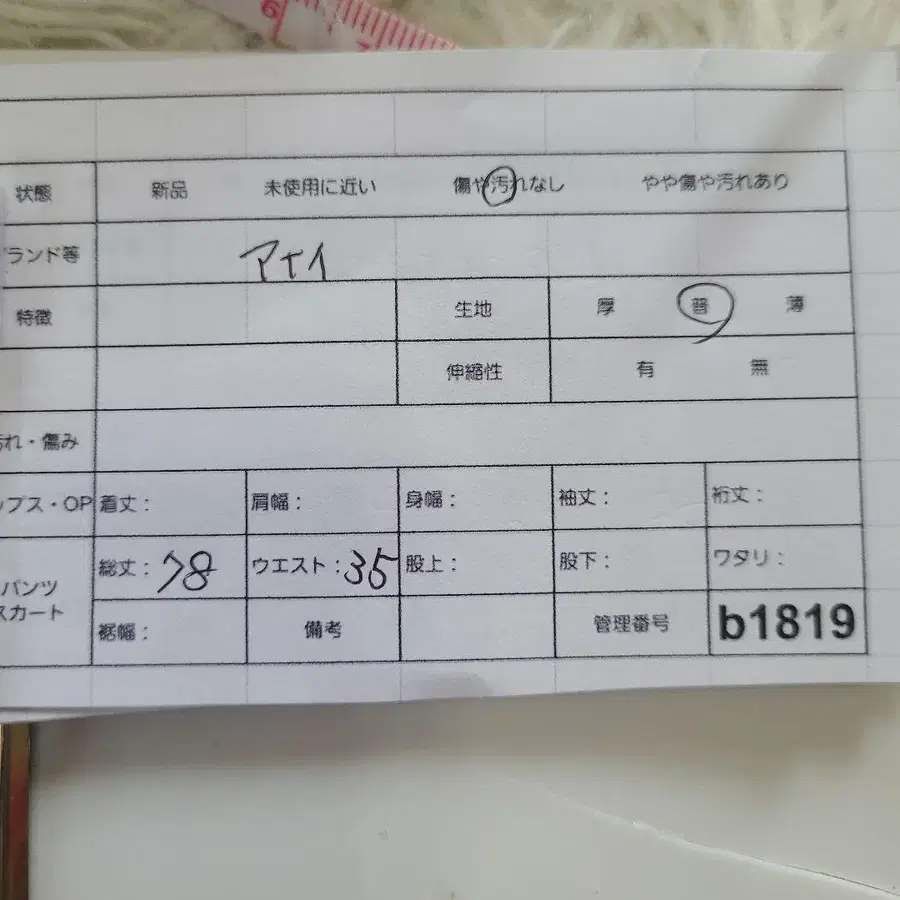 状態 新品 未使用に近い 傷や汚れなし やや傷や汚れあり
ランド等 アナイ
特徴 生地 厚 普 薄
伸縮性 有 無
汚れ・傷み
ップス・OP 着丈： 肩幅： 身幅： 袖丈： 裄丈：
パンツ 総丈：78 ウエスト：35 股上： 股下： ワタリ：
スカート 裾幅： 備考 管理番号 b1819